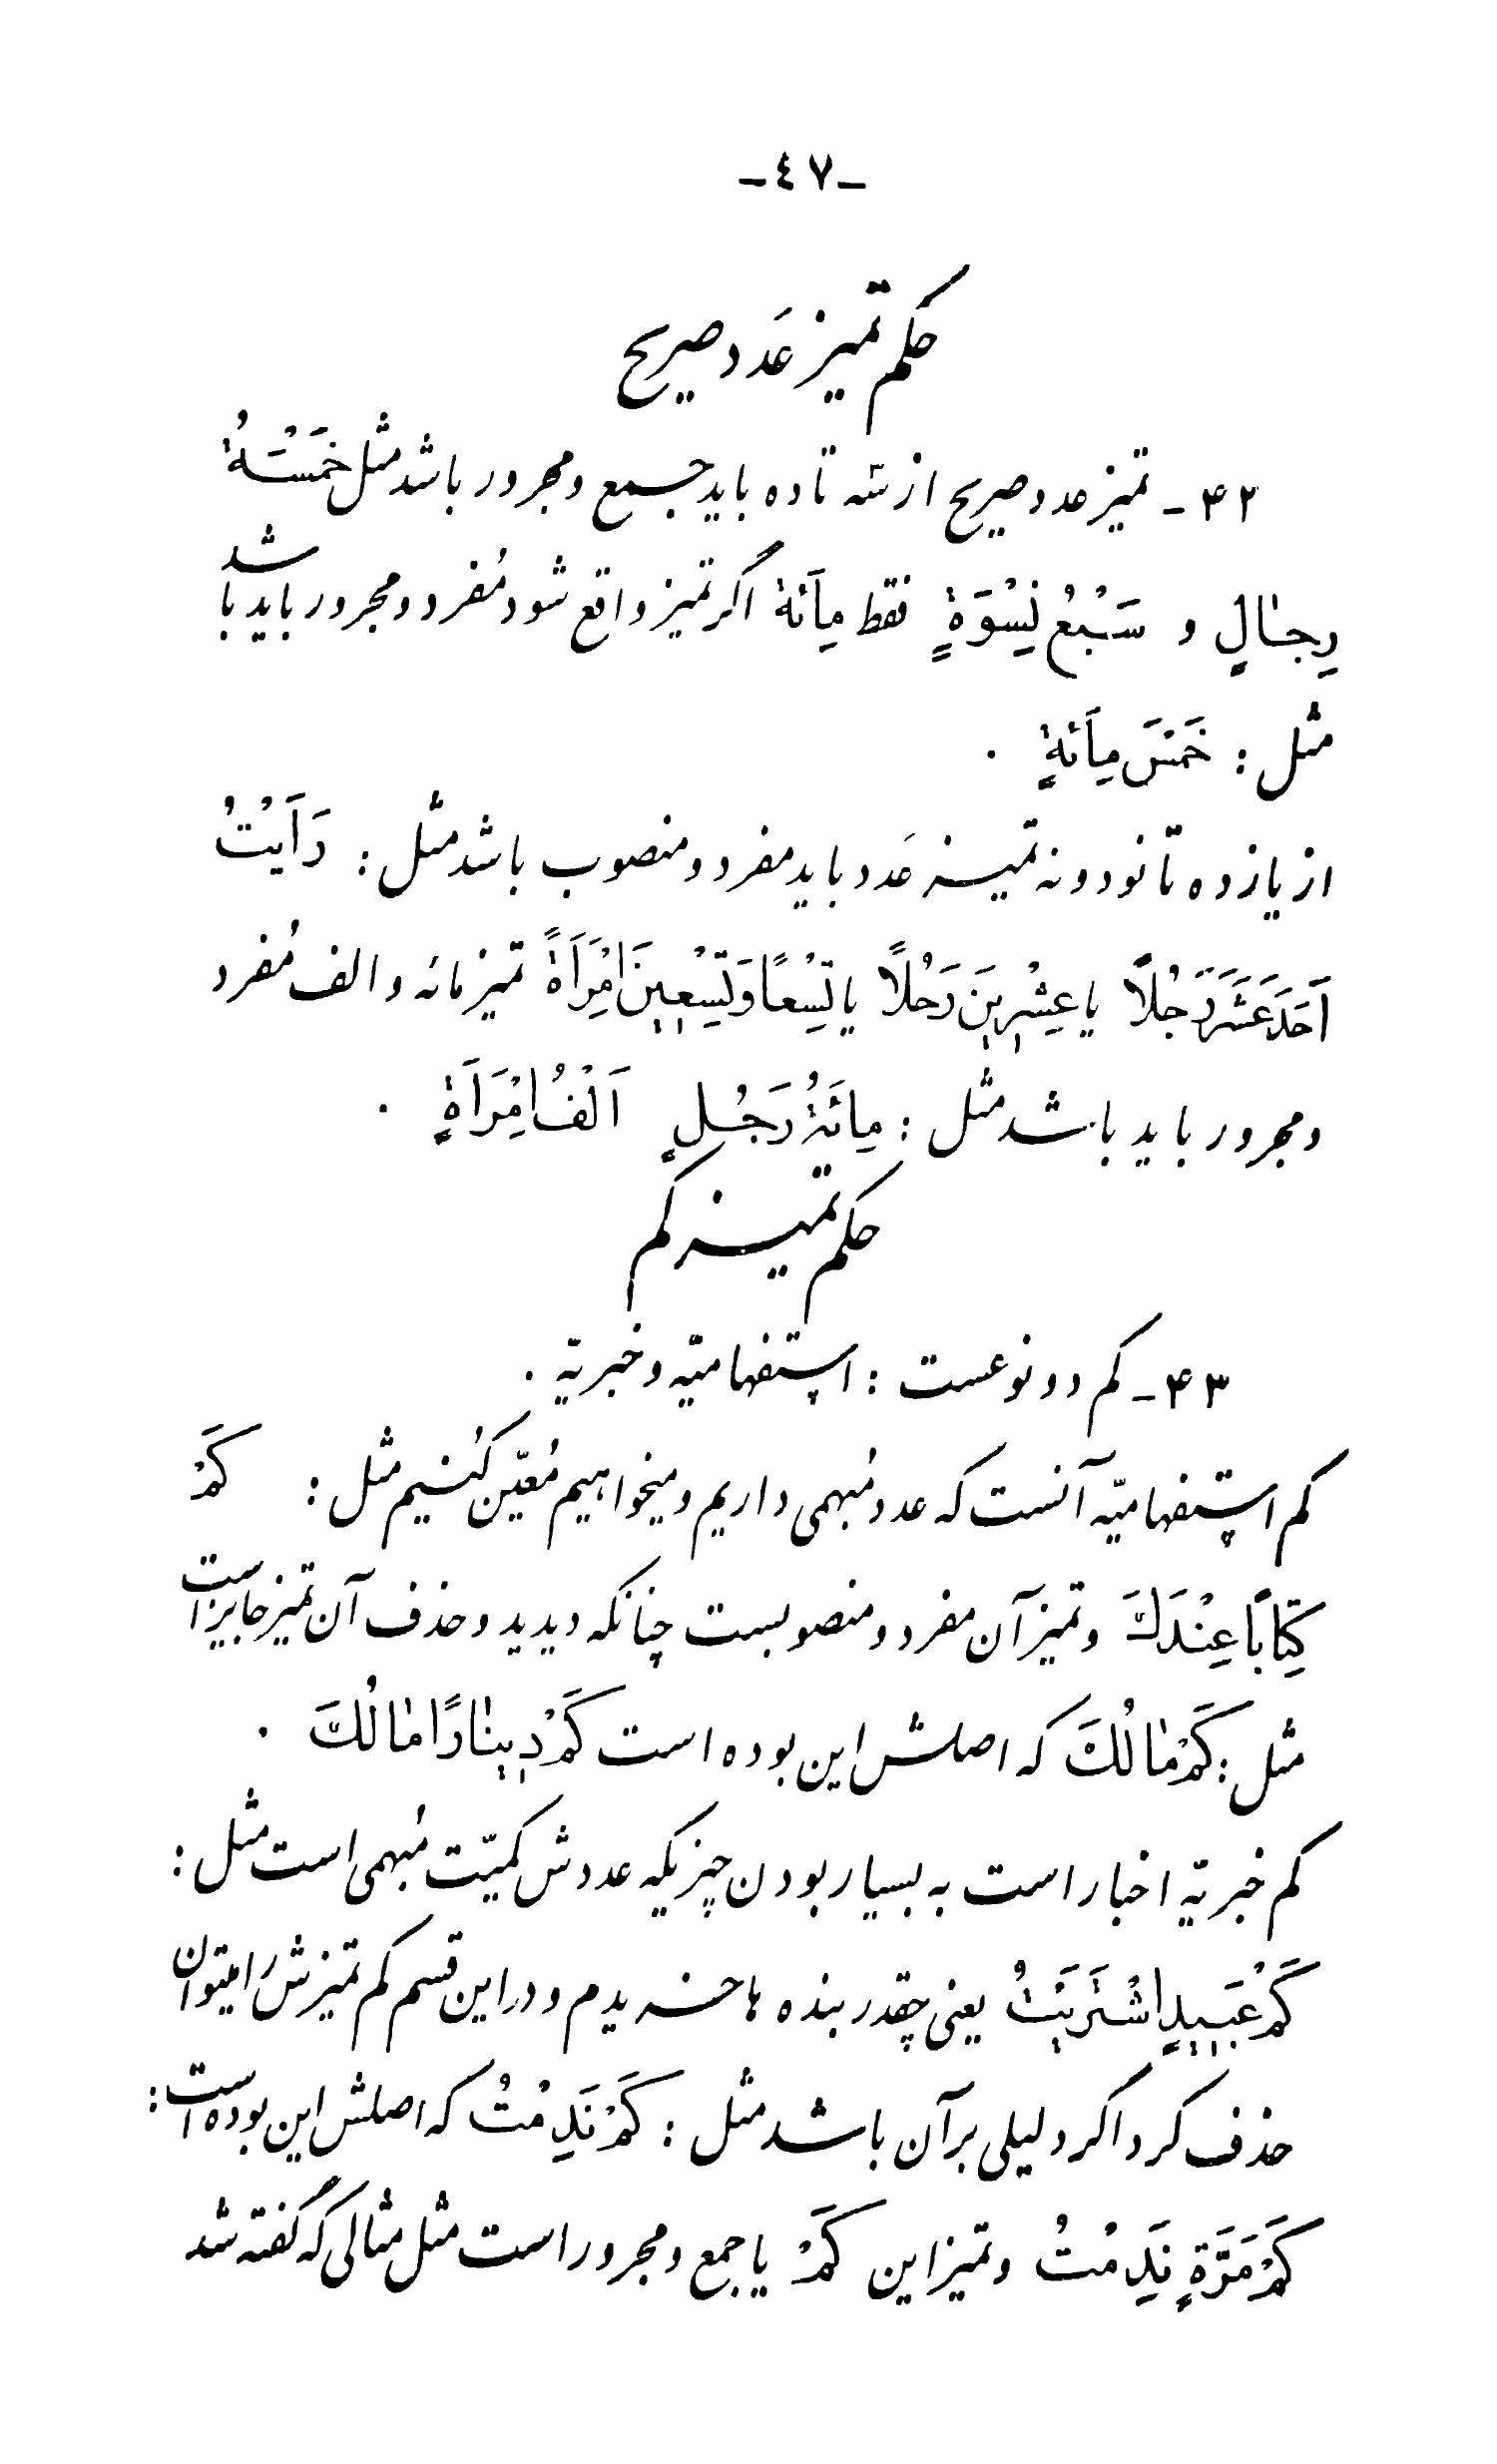 -٤٧-
حکم تمیز عَدد صریح
۴۲ - تمیز عدد صریح از سّه تا ده باید جمع و مجرور باشد مثل خَمْسَةُ
رِجٰالٍ و سَبْعُ نِسْوَةٍ فقط مِأَئة اگر تمیز واقع شود مُفرد و مجرور باید باشد
مثل : خَمْسَ مِأَئةٍ .
از یازده تا نود و نه تمیز عَدد باید مفرد و منصوب باشد مثل : رَأَیْتُ
اَحَدَ عَشَرَ رَجُلاً یا عِشْرِینَ رَجُلًا یا تِسْعًا وَ تِسْعِینَ امْرَأَةً تمیز مائه و الف مُفرد
و مجرور باید باشد مثل : مِائَةُ رَجُلٍ اَلْفُ امْرَأَةٍ .
حکم تمیز کم
۴۳ - کم دو نوعست : استفهامیّه و خبریّه .
کم استفهامیّه آنست که عدد مُبهمی داریم و میخواهیم مُعیّن کُنیم مثل : کَمْ
کِتٰاباً عِنْدَكَ و تمیز آن مفرد و منصوبست چنانکه دیدید و حذف آن تمیز جایز است
مثل : کَمْ مٰالُكَ که اصلش این بوده است کَمْ دِینٰارًا مٰالُكَ .
کم خبریّه اخبار است به بسیار بودن چیزیکه عددش کمیّت مُبهمی است مثل :
کَمْ عَبِیدٍ اشْتَرَیْتُ یعنی چقدر بنده ها خریدم و در این قسم کم تمیزش را میتوان
حذف کرد اگر دلیلی بر آن باشد مثل : کَمْ نَدِمْتُ که اصلش این بوده است :
کَمْ مَرَّةٍ نَدِمْتُ و تمیز این کَمْ یا جمع و مجرور است مثل مثالی که گفته شد